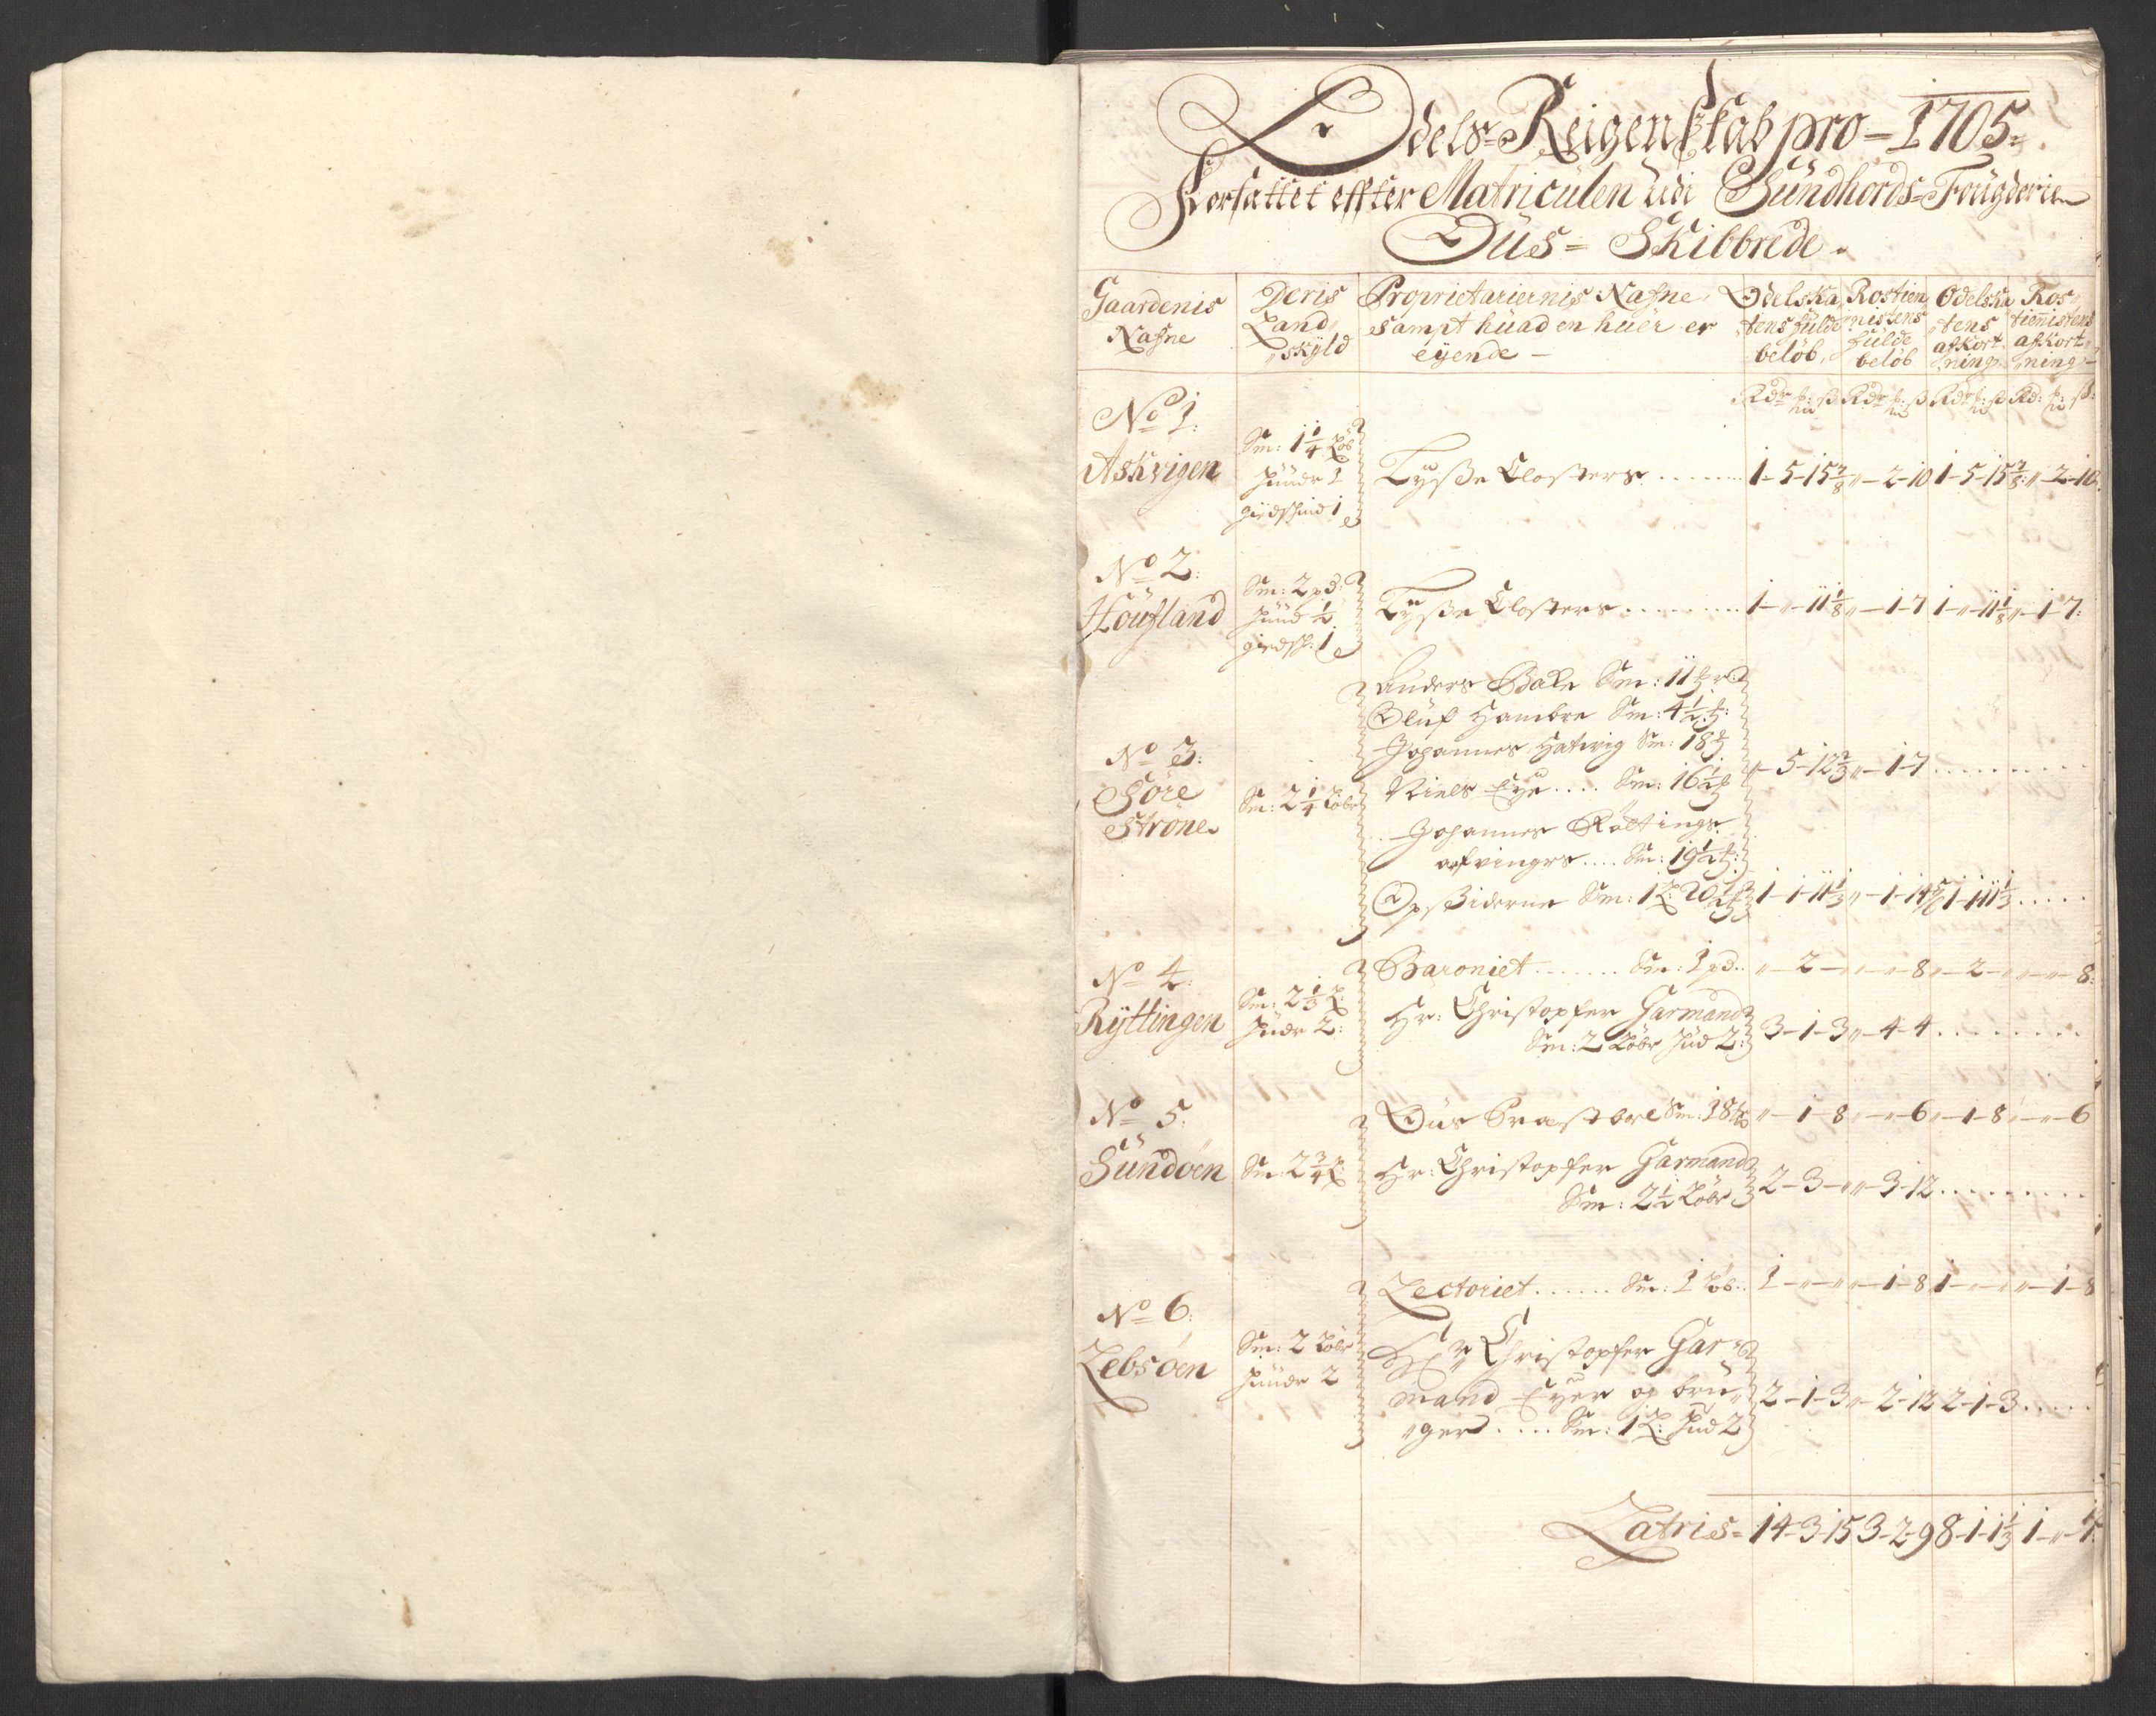 Odels-Reigenskab pro-1705-
Forfattet effter Matriculen udi Sündhords-Fougderie
Öus-Skibbrede.
Gaardenis Nafne
Deris Landskyld
Proprietariernis Nafne sampt hüad en hüer er eyende-
Odelska tens fulde beløb,
Rostien nistens fulde beløb
Odelska tens afkort ning
Ros tiennistens afkort ning-
Rdr ß Rdr ß Rdr ß Rd: ß:
No 1: Askvigen
Sm: 1 1/4 Løb
huude 1
giedskind 1
Lysse Closters ........ 1-5-15 7/8 "-2-10 1-5-15 7/8 "-2-10.
No 2: Höufland
Sm: 2 pd:
huud 1/2
giedsk: 1
Lysse Closters ........ 1-"-11 1/8 "-1-7 1-"-11 1/8 "-1-7:
No 3: Søre Strøne
Sm: 2 1/4 Løbr
Anders Bale Sm: 11
Oluf Hambre Sm: 4 1/2
Johannes Hatvig Sm: 18
Niels Eye .... Sm: 16 1/2
"-5-12 2/3 "-1-7 .........
Johannes Röttings arfvinger .... Sm: 19 1/2
Opsiderne Sm: 1 L: 20 1/2 1-1-11 1/3 "-1-14 5/6 1-1-11 1/3 .....
No 4: Ryttingen
Sm: 2 1/3 L:
huude 2:
Baroniet ....... Sm: 1 pd.. "-2-"-"-"-8 "-2-"-"-"-8:
Hr: Christopher Garmand
Sm: 2 Løbr hud 2: 3-1-3 "-4-4 ........
No 5: Sündöen
Sm: 2 3/4 L:
Öus Prastbol Sm: 18 "-1-8 "-"-6 "-1-8 "-"-6
Hr: Christopher Garmand
Sm: 2 1/2 Løbr 2-3-" "-3-12 .........
No 6: Lebsöen
Sm: 2 Løbr
huude 2
Lectoriet ...... Sm: 1 Løb.. 1-"-" "-1-8 1-"-" "-1-8
Hr: Christopher Garmand Eyer og brüger .... Sm: 1 L: hud 2
2-1-3 "-2-12 2-1-3 .....
Latris= 14-3-15 3-2-9 8-1-1 1/3 1-"-7.